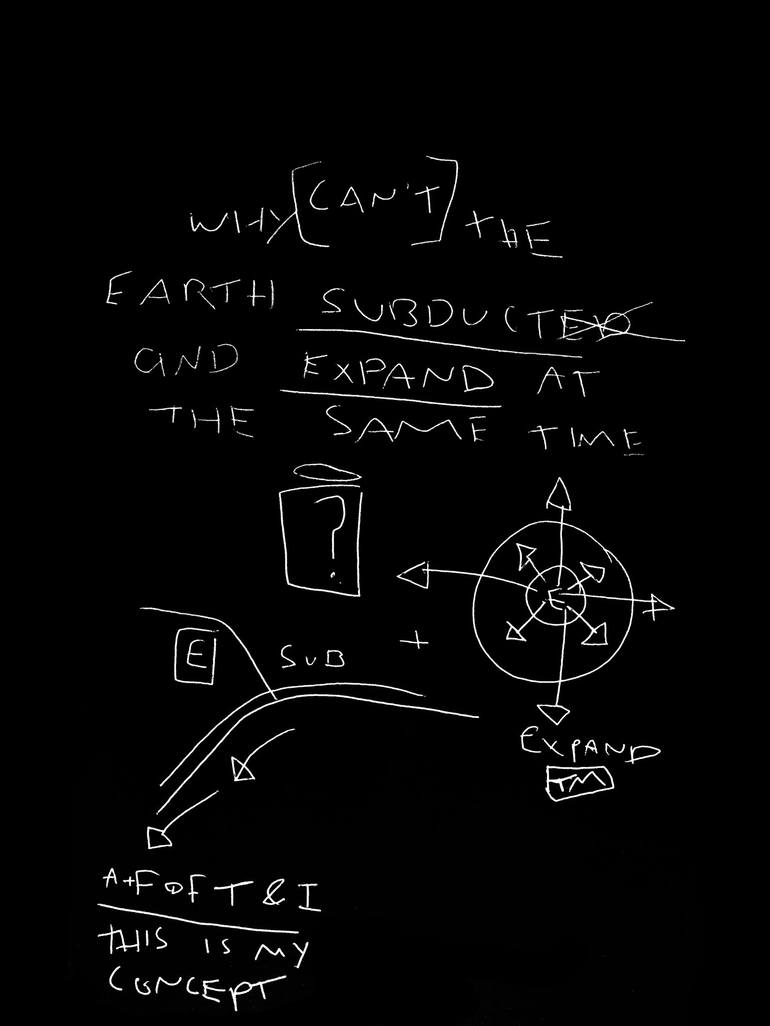 WHY [CAN'T] THE
EARTH SUBDUCTED
AND EXPAND AT
THE SAME TIME
?
E
E
SUB
+
EXPAND
TM
A+F OF T & I
THIS IS MY
CONCEPT